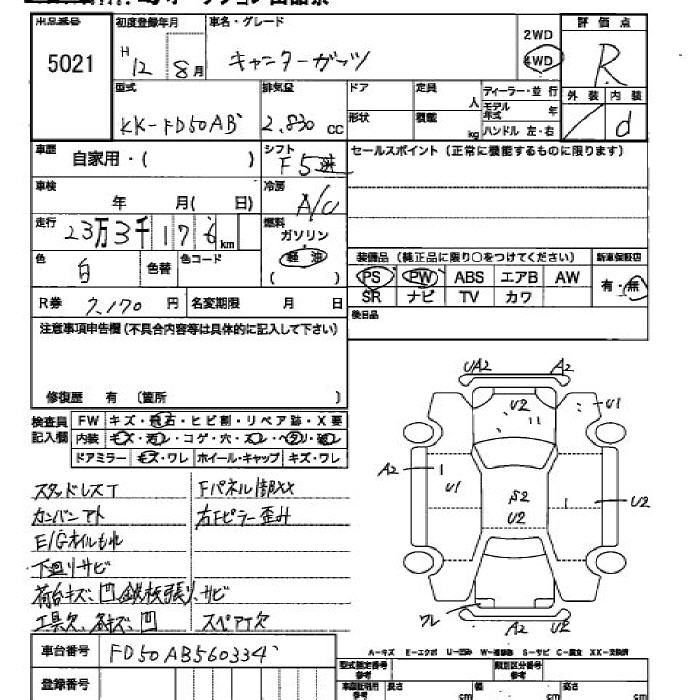 出品番号 初度登録年月 車名・グレード 評価点
5021 H 12 8月 キャンターガッツ 2WD
4WD R
型式 排気量 ドア 定員 人 ディーラー・並行 外装 内装
KK-FD50AB 2.830 cc 形状 積載 kg モデル年式 年
ハンドル 左・右 d
車歴 自家用・( ) シフト F5速 セールスポイント(正常に機能するものに限ります)
車検 年 月( 日) 冷房 A/C
走行 23万3千176km 燃料 ガソリン
軽油
( )
色 白 色替 色コード
装備品(純正品に限り○をつけてください) 新車保証書
PS PW ABS エアB AW 有・無
SR ナビ TV カワ
R券 7,170 円 名変期限 月 日 後日品
注意事項申告欄(不具合内容等は具体的に記入して下さい)
修復歴 有 (箇所 )
検査員記入欄 FW キズ・飛石・ヒビ割・リペア跡・X要
内装 キズ・汚レ・コゲ・穴・スレ・ヘタリ・破レ
ドアミラー キズ・ワレ ホイール・キャップ キズ・ワレ
スタッドレスT Fパネル信阝XX
カンバンアト 右Fピラー歪み
E/Gオイルもれ
下廻りサビ
荷台キズ、凹、鉄板張り、サビ
工具欠、各キズ、凹 スペア欠
UA2 A2
U2 U1
A2 U1 S2
U2 U2
ワレ A2 U2
車台番号 FD50AB560334
登録番号
A-キズ E-エクボ U-凹み W-補修跡 S-サビ C-腐食 XX-交換済
型式指定番号
参考 類別区分番号
参考
車庫証明用
参考 長さ cm 幅 cm 高さ cm